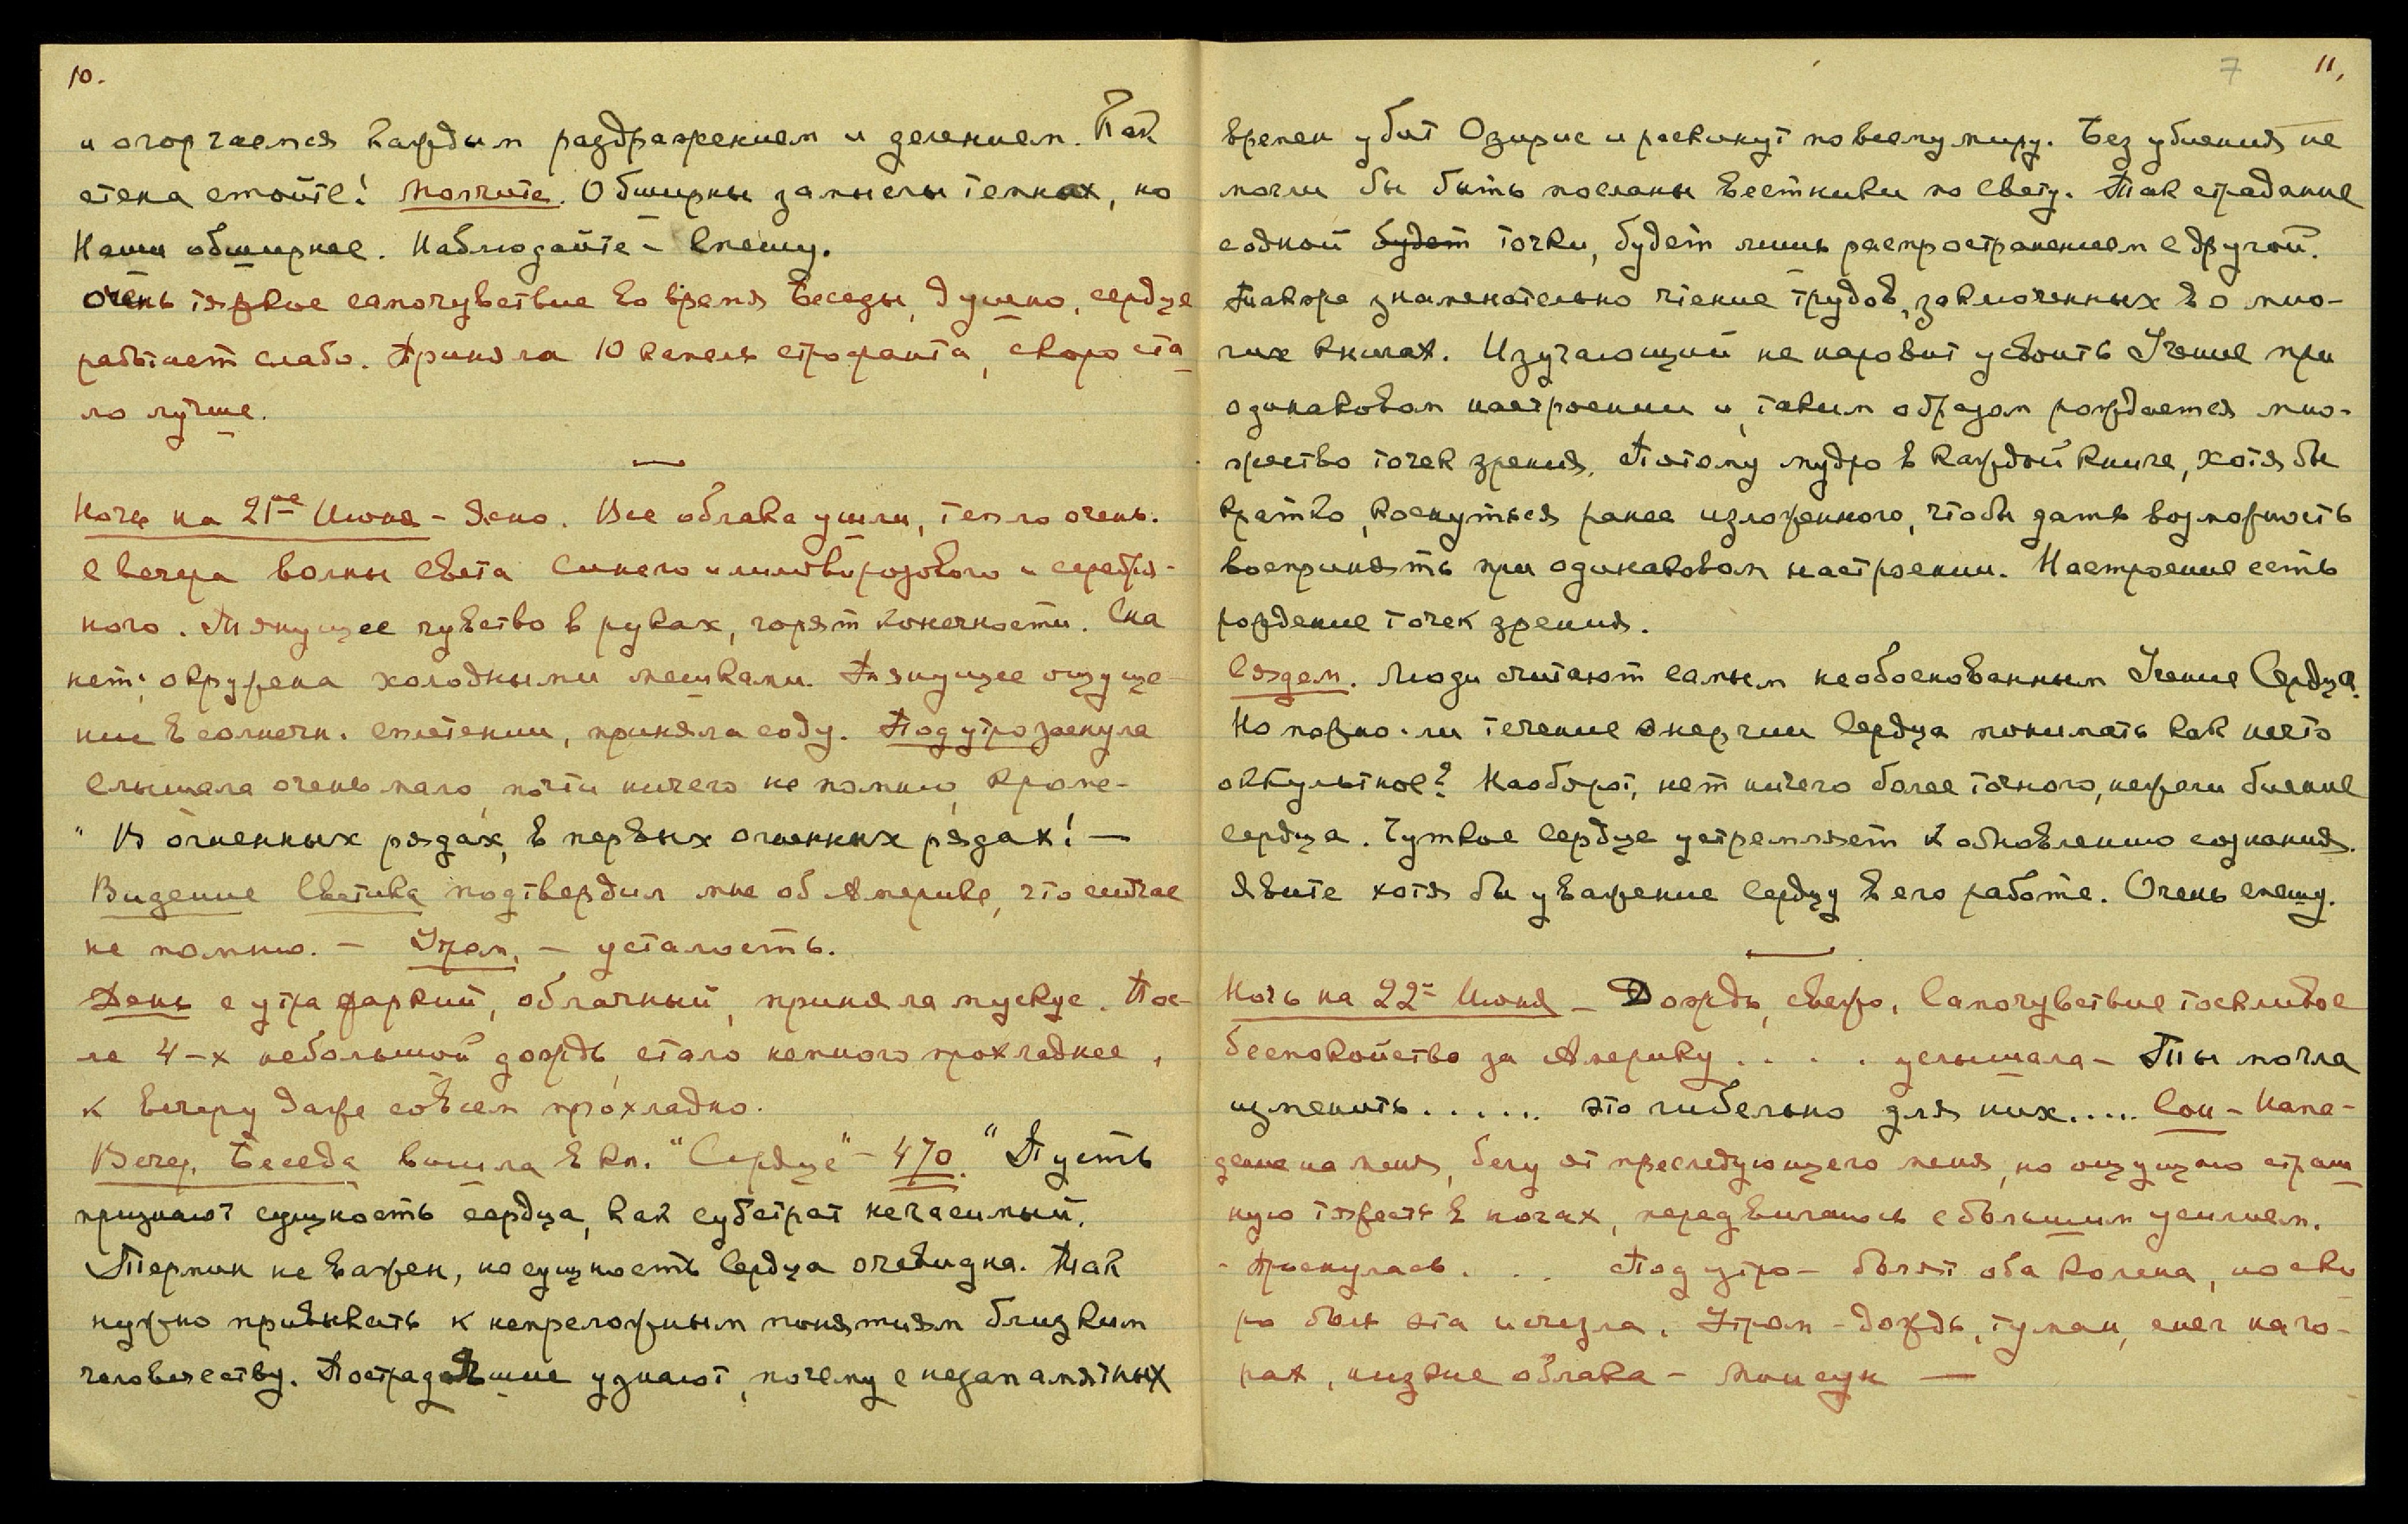 10.
и огорчаемся каждым раздражением и делением. Как
стена стойте! Молчите. Обширны замыслы темных, но
Наши обширнее. Наблюдайте – Спешу.
Очень тяжкое самочувствие во время Беседы, душно, сердце
работает слабо. Приняла 10 капель строфанта, скоро ста
ло лучше.
—
Ночь на 21ое Июня – Ясно. Все облака ушли, тепло очень.
С вечера волны света синего и лилово-розового и серебря-
ного. Тянущее чувство в руках, горят конечности. Сна
нет; окружена холодными мешками. Тянущее ощуще-
ние в солнечн. сплетении, приняла соду. Под утро заснула
слышала очень мало, почти ничего не помню, кроме-
" В огненных рядах, в первых огненных рядах! —
Видение Светика подтвердил мне об Америке, что сейчас
не помню. – Утром, – усталость.
День с утра жаркий, облачный, приняла мускус. Пос-
ле 4-х небольшой дождь, стало немного прохладнее,
к вечеру даже совсем прохладно.
Вечер. Беседа вошла в кн. "Сердце" – 470. "Пусть
признают сущность сердца, как субстрат негасимый.
Термин не важен, но сущность Сердца очевидна. Так
нужно привыкать к непреложным понятиям близким
человечеству. Пострадавшие узнают, почему с незапамятных
7 11.
времен убит Озирис и раскинут по всему миру. Без убиения не
могли бы быть посланы вестники по свету. Так страдание
с одной будет точки, будет лишь распространением с другой.
Также знаменательно чтение трудов, заключенных во мно-
гих книгах. Изучающий не наровит усвоить Учение при
одинаковом настроении и, таким образом рождается мно-
жество точек зрения. Потому мудро в каждой книге, хотя бы
кратко, коснуться ранее изложенного, чтобы дать возможность
воспринять при одинаковом настроении. Настроение есть
рождение точек зрения.
Сядем. Люди считают самым необоснованным Учение Сердца.
Но можно-ли течение энергии Сердца понимать как нечто
оккультное? Наоборот, нет ничего более точного, нежели биение
сердца. Чуткое сердце устремляет к обновлению сознания.
Явите хотя бы уважение Сердцу в его работе. Очень спешу.
—
Ночь на 22е Июня – Дождь, свежо. Самочувствие тоскливое
беспокойство за Америку . . . . услышала – Ты могла
изменить . . . . . . это гибельно для них.... Сон – Напа-
дение на меня, бегу от преследующего меня, но ощущаю страш
ную тяжесть в ногах, передвигаюсь с большим усилием.
- Проснулась. . . Под утро – болят оба колена, но ско
ро боль эта исчезла. Утром – дождь, туман, снег на го-
рах, низкие облака – Монсун —